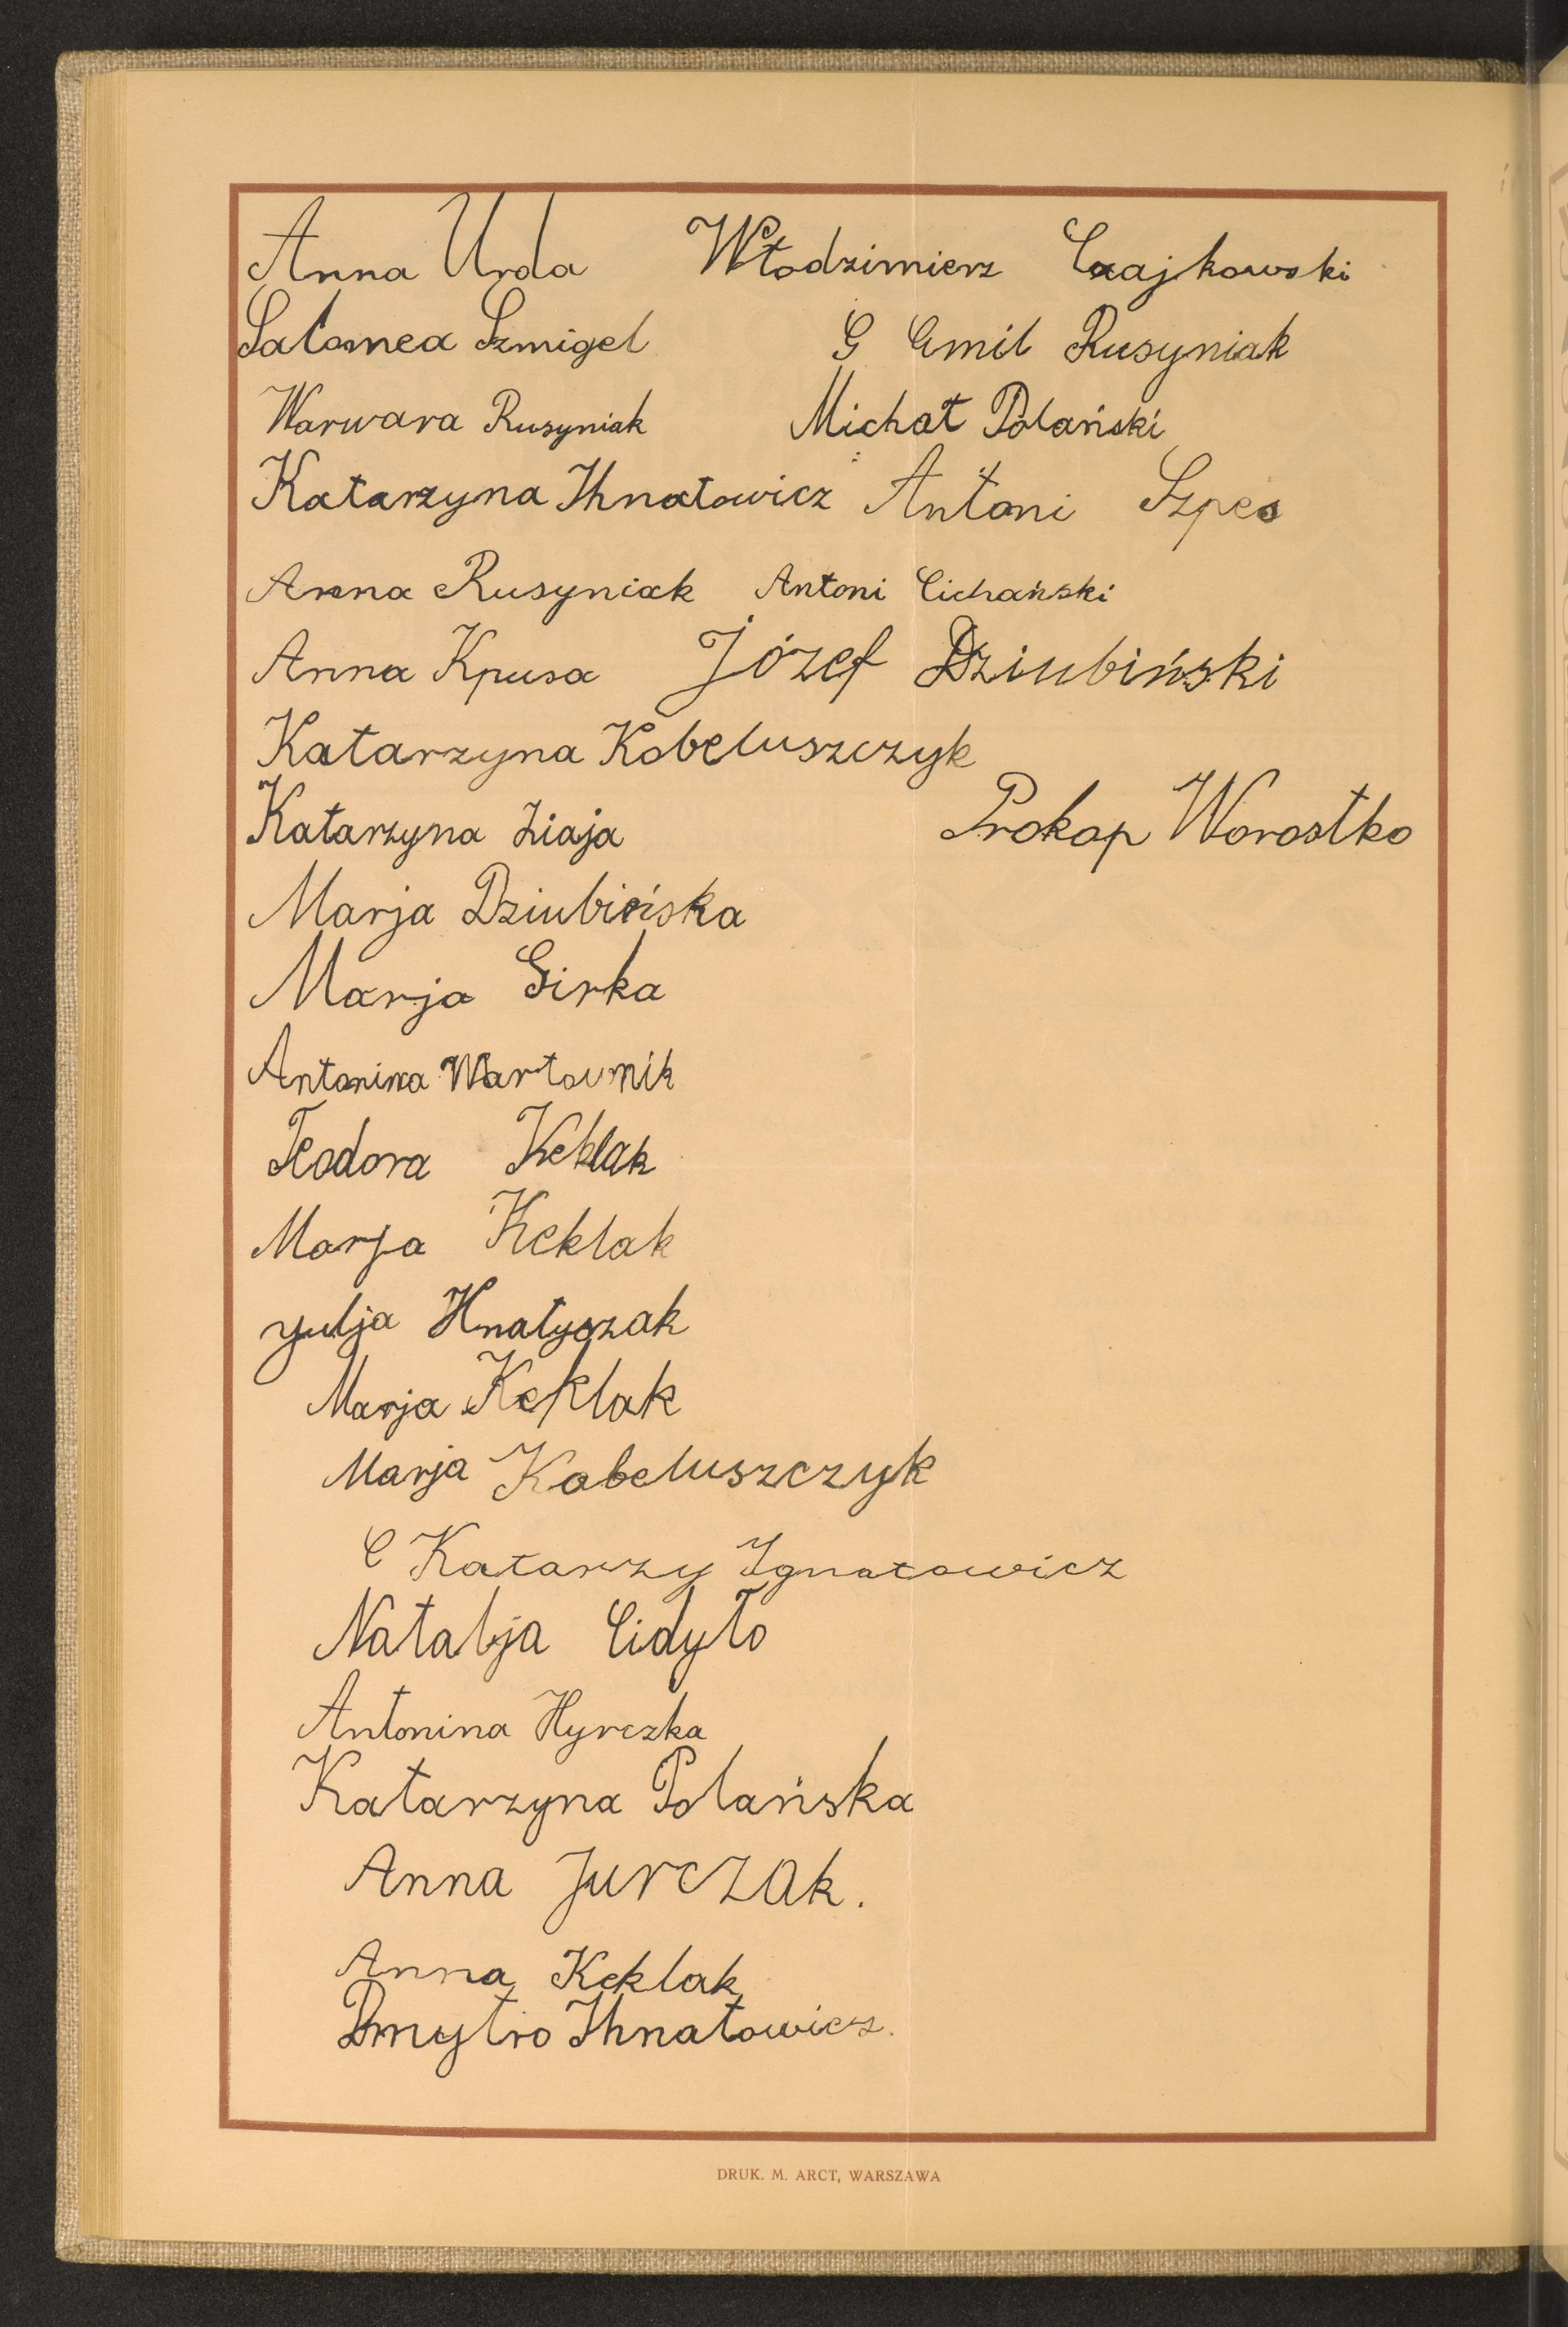 Anna Urda Włodzimierz Czajkowski
Salomea Szmigel G Emil Rusyniak
Warwara Rusyniak Michał Polański
Katarzyna Ihnatowicz Antoni Szpes
Anna Rusyniak Antoni Cichański
Anna Kpusa Józef Dziubiński
Katarzyna Kobeluszczyk
Katarzyna Ziaja Prokop Worostko
Marja Dziubińska
Marja Girka
Antonina Wartownik
Teodora Keklak
Marja Keklak
Yulja Hnatyszak
Marja Keklak
Marja Kobeluszczyk
C Katarzy Ignatowicz
Natalja Cidyło
Antonina Hyrczka
Katarzyna Polańska
Anna Jurczak.
Anna Keklak
Dmytro Ihnatowicz.
DRUK. M. ARCT, WARSZAWA